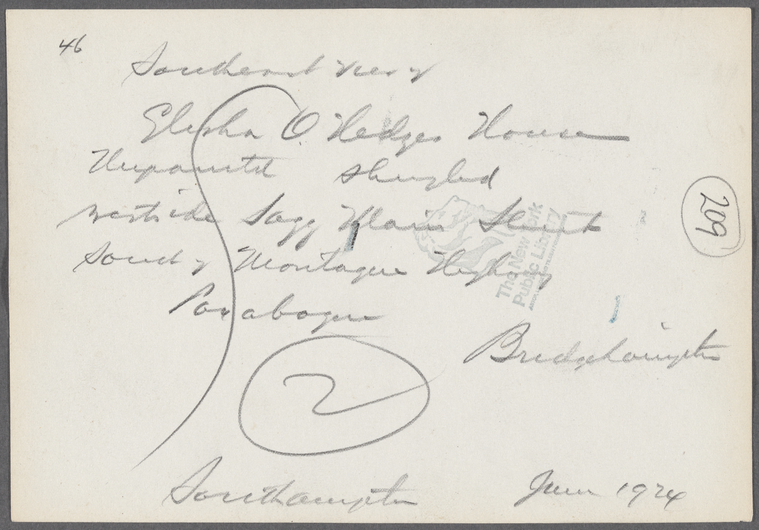 46
Southeast view
Elisha O. Hedges House
Unpainted shingled
westside Sagg Main Street
South of Montague Highway
Poxabogue
The New York
Public Library
209
Bridgehampton
2
Southampton June 1924